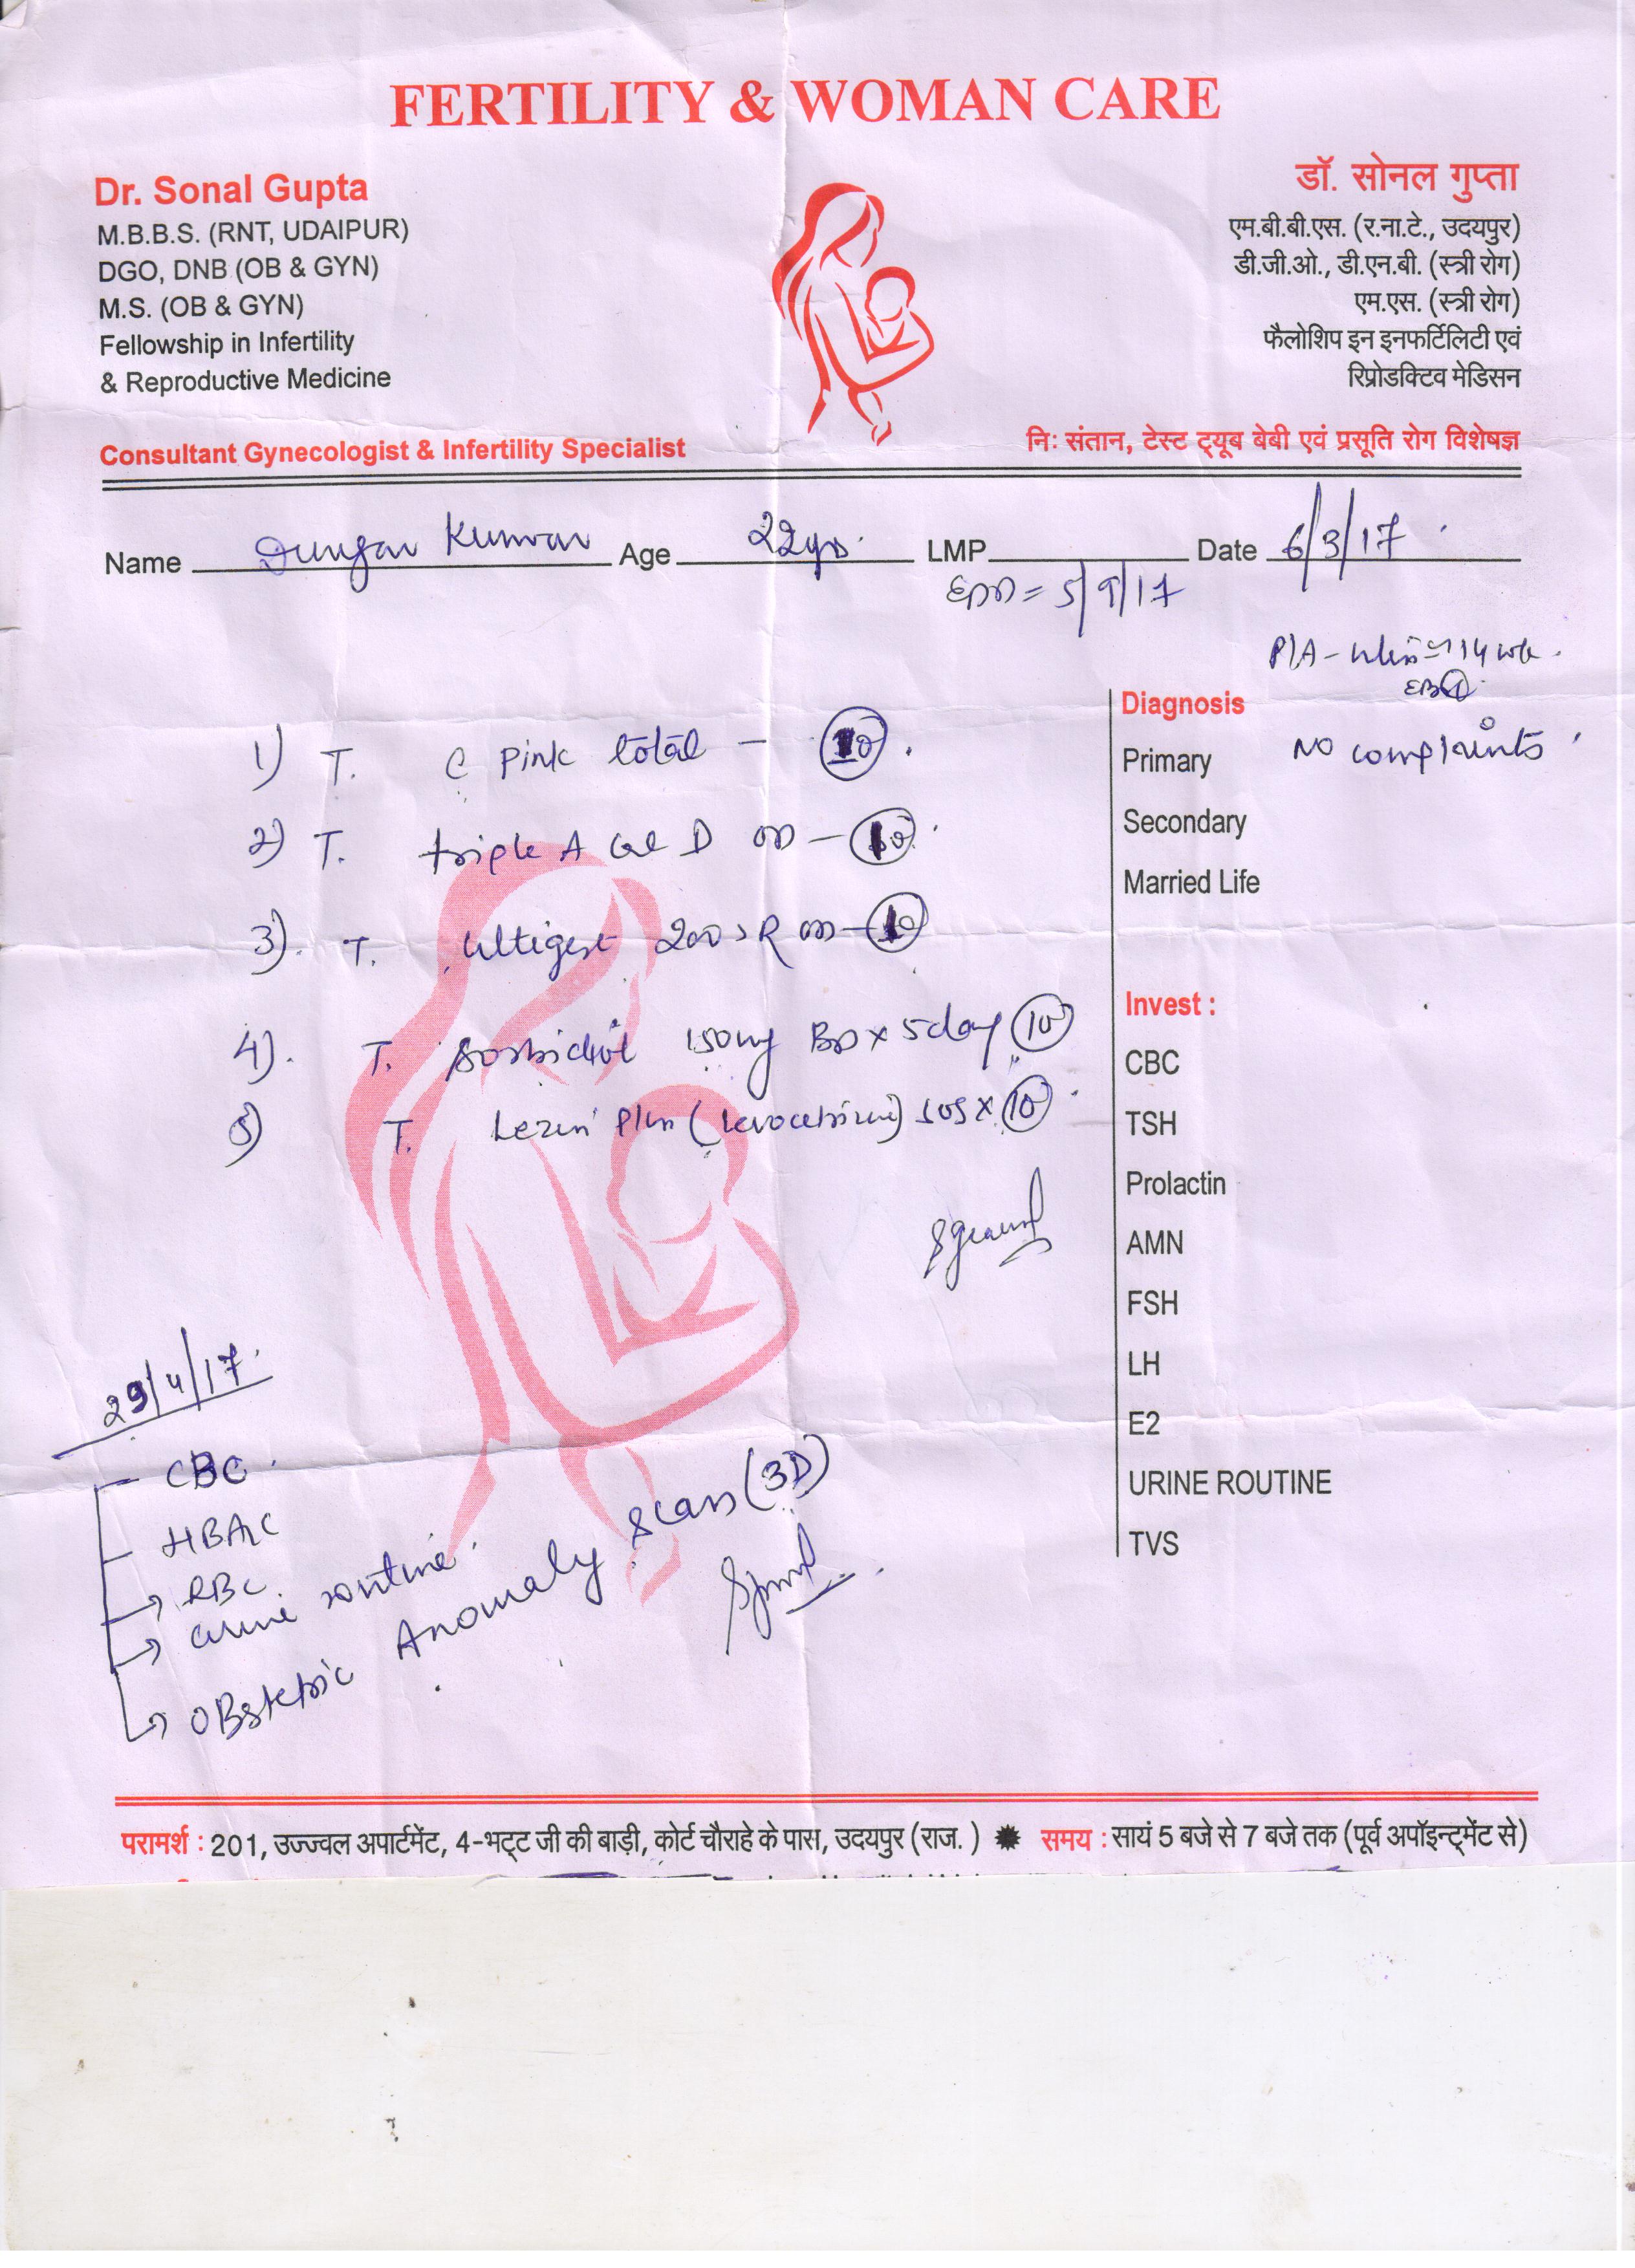 FERTILITY & WOMAN CARE
Dr. Sonal Gupta
M.B.B.S. (RNT, UDAIPUR)
DGO, DNB (OB & GYN)
M.S. (OB & GYN)
Fellowship in Infertility
& Reproductive Medicine
Consultant Gynecologist & Infertility Specialist
डॉ. सोनल गुप्ता
एम.बी.बी.एस. (र.ना.टे., उदयपुर)
डी.जी.ओ., डी.एन.बी. (स्त्री रोग)
एम.एस. (स्त्री रोग)
फैलोशिप इन इनफर्टिलिटी एवं
रिप्रोडक्टिव मेडिसन
नि: संतान, टेस्ट ट्यूब बेबी एवं प्रसूति रोग विशेषज्ञ
Name Dungar Kunwar Age 22yrs. LMP Date 6/3/17
EDD = 5/9/17
P/A - 14 wk.
1) T. C Pink total - 10.
2) T. triple A Cal D OD - 10.
3). T. 200 SR OD - 10
4). T. 150mg BD x 5day 10
5) T. Lezin Plus (levocetrizine) SOS x 10.
Diagnosis
No complaints
Primary
Secondary
Married Life
Invest :
CBC
TSH
Prolactin
AMN
FSH
LH
E2
URINE ROUTINE
TVS
29/4/17.
CBC.
HBA1C
RBC.
urine routine.
OBstetric Anomaly scan (3D)
परामर्श : 201, उज्ज्वल अपार्टमेंट, 4-भट्ट जी की बाड़ी, कोर्ट चौराहे के पास, उदयपुर (राज. ) समय : सायं 5 बजे से 7 बजे तक (पूर्व अपॉइन्ट्मेंट से)